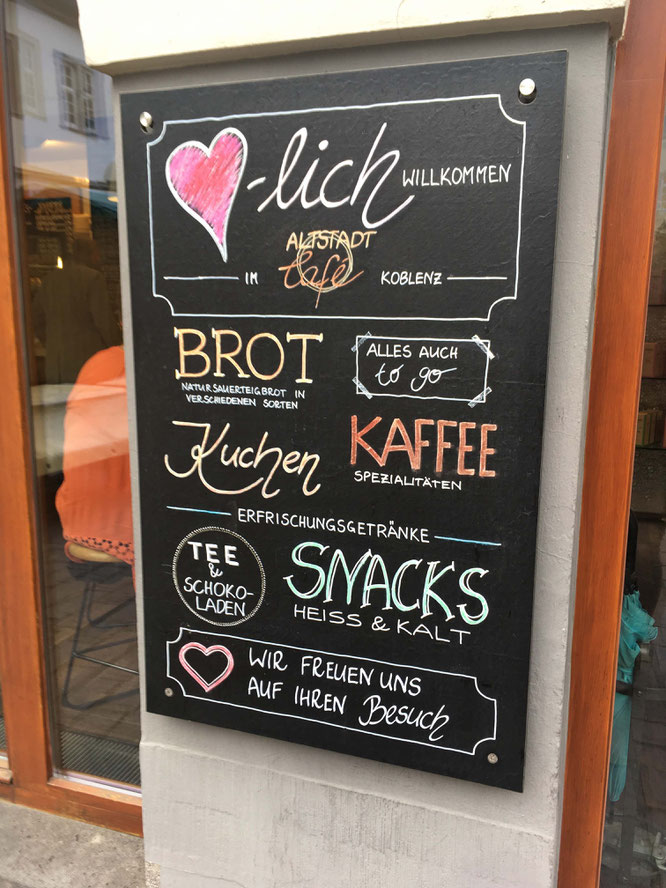 -lich WILLKOMMEN
ALTSTADT
IM Café KOBLENZ
BROT
NATURSAUERTEIGBROT IN
VERSCHIEDENEN SORTEN
ALLES AUCH
to go
Kuchen
KAFFEE
SPEZIALITÄTEN
ERFRISCHUNGSGETRÄNKE
TEE
&
SCHOKO-
LADEN
SNACKS
HEISS & KALT
WIR FREUEN UNS
AUF IHREN Besuch